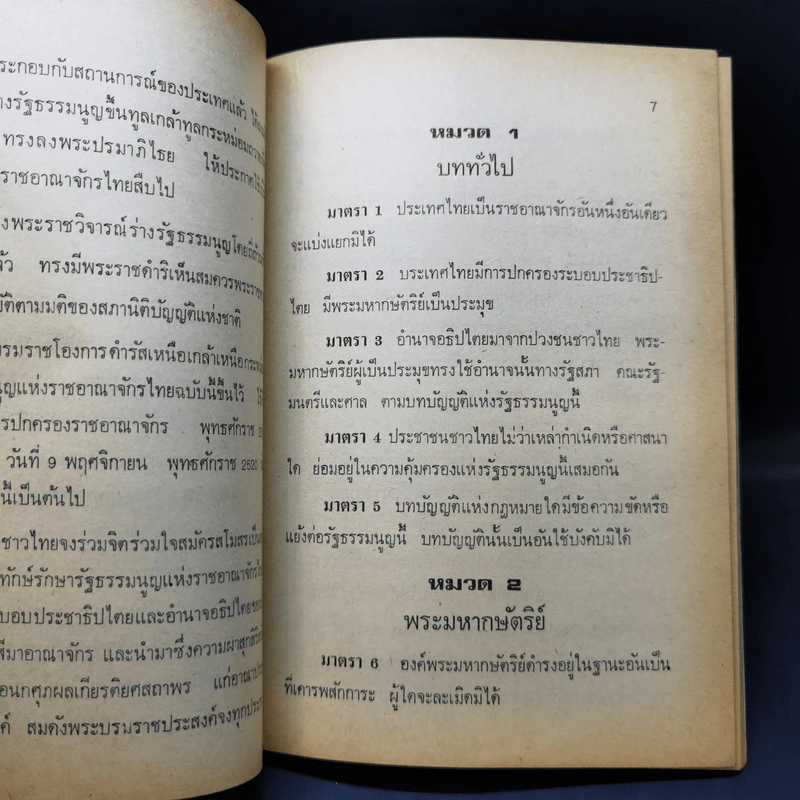 ระกอบกับสถานการณ์ของประเทศแล้ว
างรัฐธรรมนูญขึ้นทูลเกล้าทูลกระหม่อมถวาย
ทรงลงพระปรมาภิไธย ให้ประกาศใช้เป็น
ราชอาณาจักรไทยสืบไป
งพระราชวิจารณ์ร่างรัฐธรรมนูญโดยถี่ถ้วน
ล้ว ทรงมีพระราชดำริเห็นสมควรพระราช
บัติตามมติของสภานิติบัญญัติแห่งชาติ
รมราชโองการดำรัสเหนือเกล้าเหนือกระหม่อม
นูญแห่งราชอาณาจักรไทยฉบับนี้ขึ้นไว้ ให้
รปกครองราชอาณาจักร พุทธศักราช
วันที่ 9 พฤศจิกายน พุทธศักราช 2520
นี้เป็นต้นไป
ชาวไทยจงร่วมจิตร่วมใจสมัครสโมสรเป็น
ทักษ์รักษารัฐธรรมนูญแห่งราชอาณาจักร
บอบประชาธิปไตยและอำนาจอธิปไตยของ
สีมาอาณาจักร และนำมาซึ่งความผาสุกสิริ
อนกศุภผลเกียรติยศสถาพร แก่อาณาประ
ค์ สมดังพระบรมราชประสงค์จงทุกประการ
7
หมวด 1
บททั่วไป
มาตรา 1 ประเทศไทยเป็นราชอาณาจักรอันหนึ่งอันเดียว
จะแบ่งแยกมิได้
มาตรา 2 ประเทศไทยมีการปกครองระบอบประชาธิป-
ไตย มีพระมหากษัตริย์เป็นประมุข
มาตรา 3 อำนาจอธิปไตยมาจากปวงชนชาวไทย พระ-
มหากษัตริย์ผู้เป็นประมุขทรงใช้อำนาจนั้นทางรัฐสภา คณะรัฐ-
มนตรีและศาล ตามบทบัญญัติแห่งรัฐธรรมนูญนี้
มาตรา 4 ประชาชนชาวไทยไม่ว่าเหล่ากำเนิดหรือศาสนา
ใด ย่อมอยู่ในความคุ้มครองแห่งรัฐธรรมนูญนี้เสมอกัน
มาตรา 5 บทบัญญัติแห่งกฎหมายใดมีข้อความขัดหรือ
แย้งต่อรัฐธรรมนูญนี้ บทบัญญัตินั้นเป็นอันใช้บังคับมิได้
หมวด 2
พระมหากษัตริย์
มาตรา 6 องค์พระมหากษัตริย์ดำรงอยู่ในฐานะอันเป็น
ที่เคารพสักการะ ผู้ใดจะละเมิดมิได้